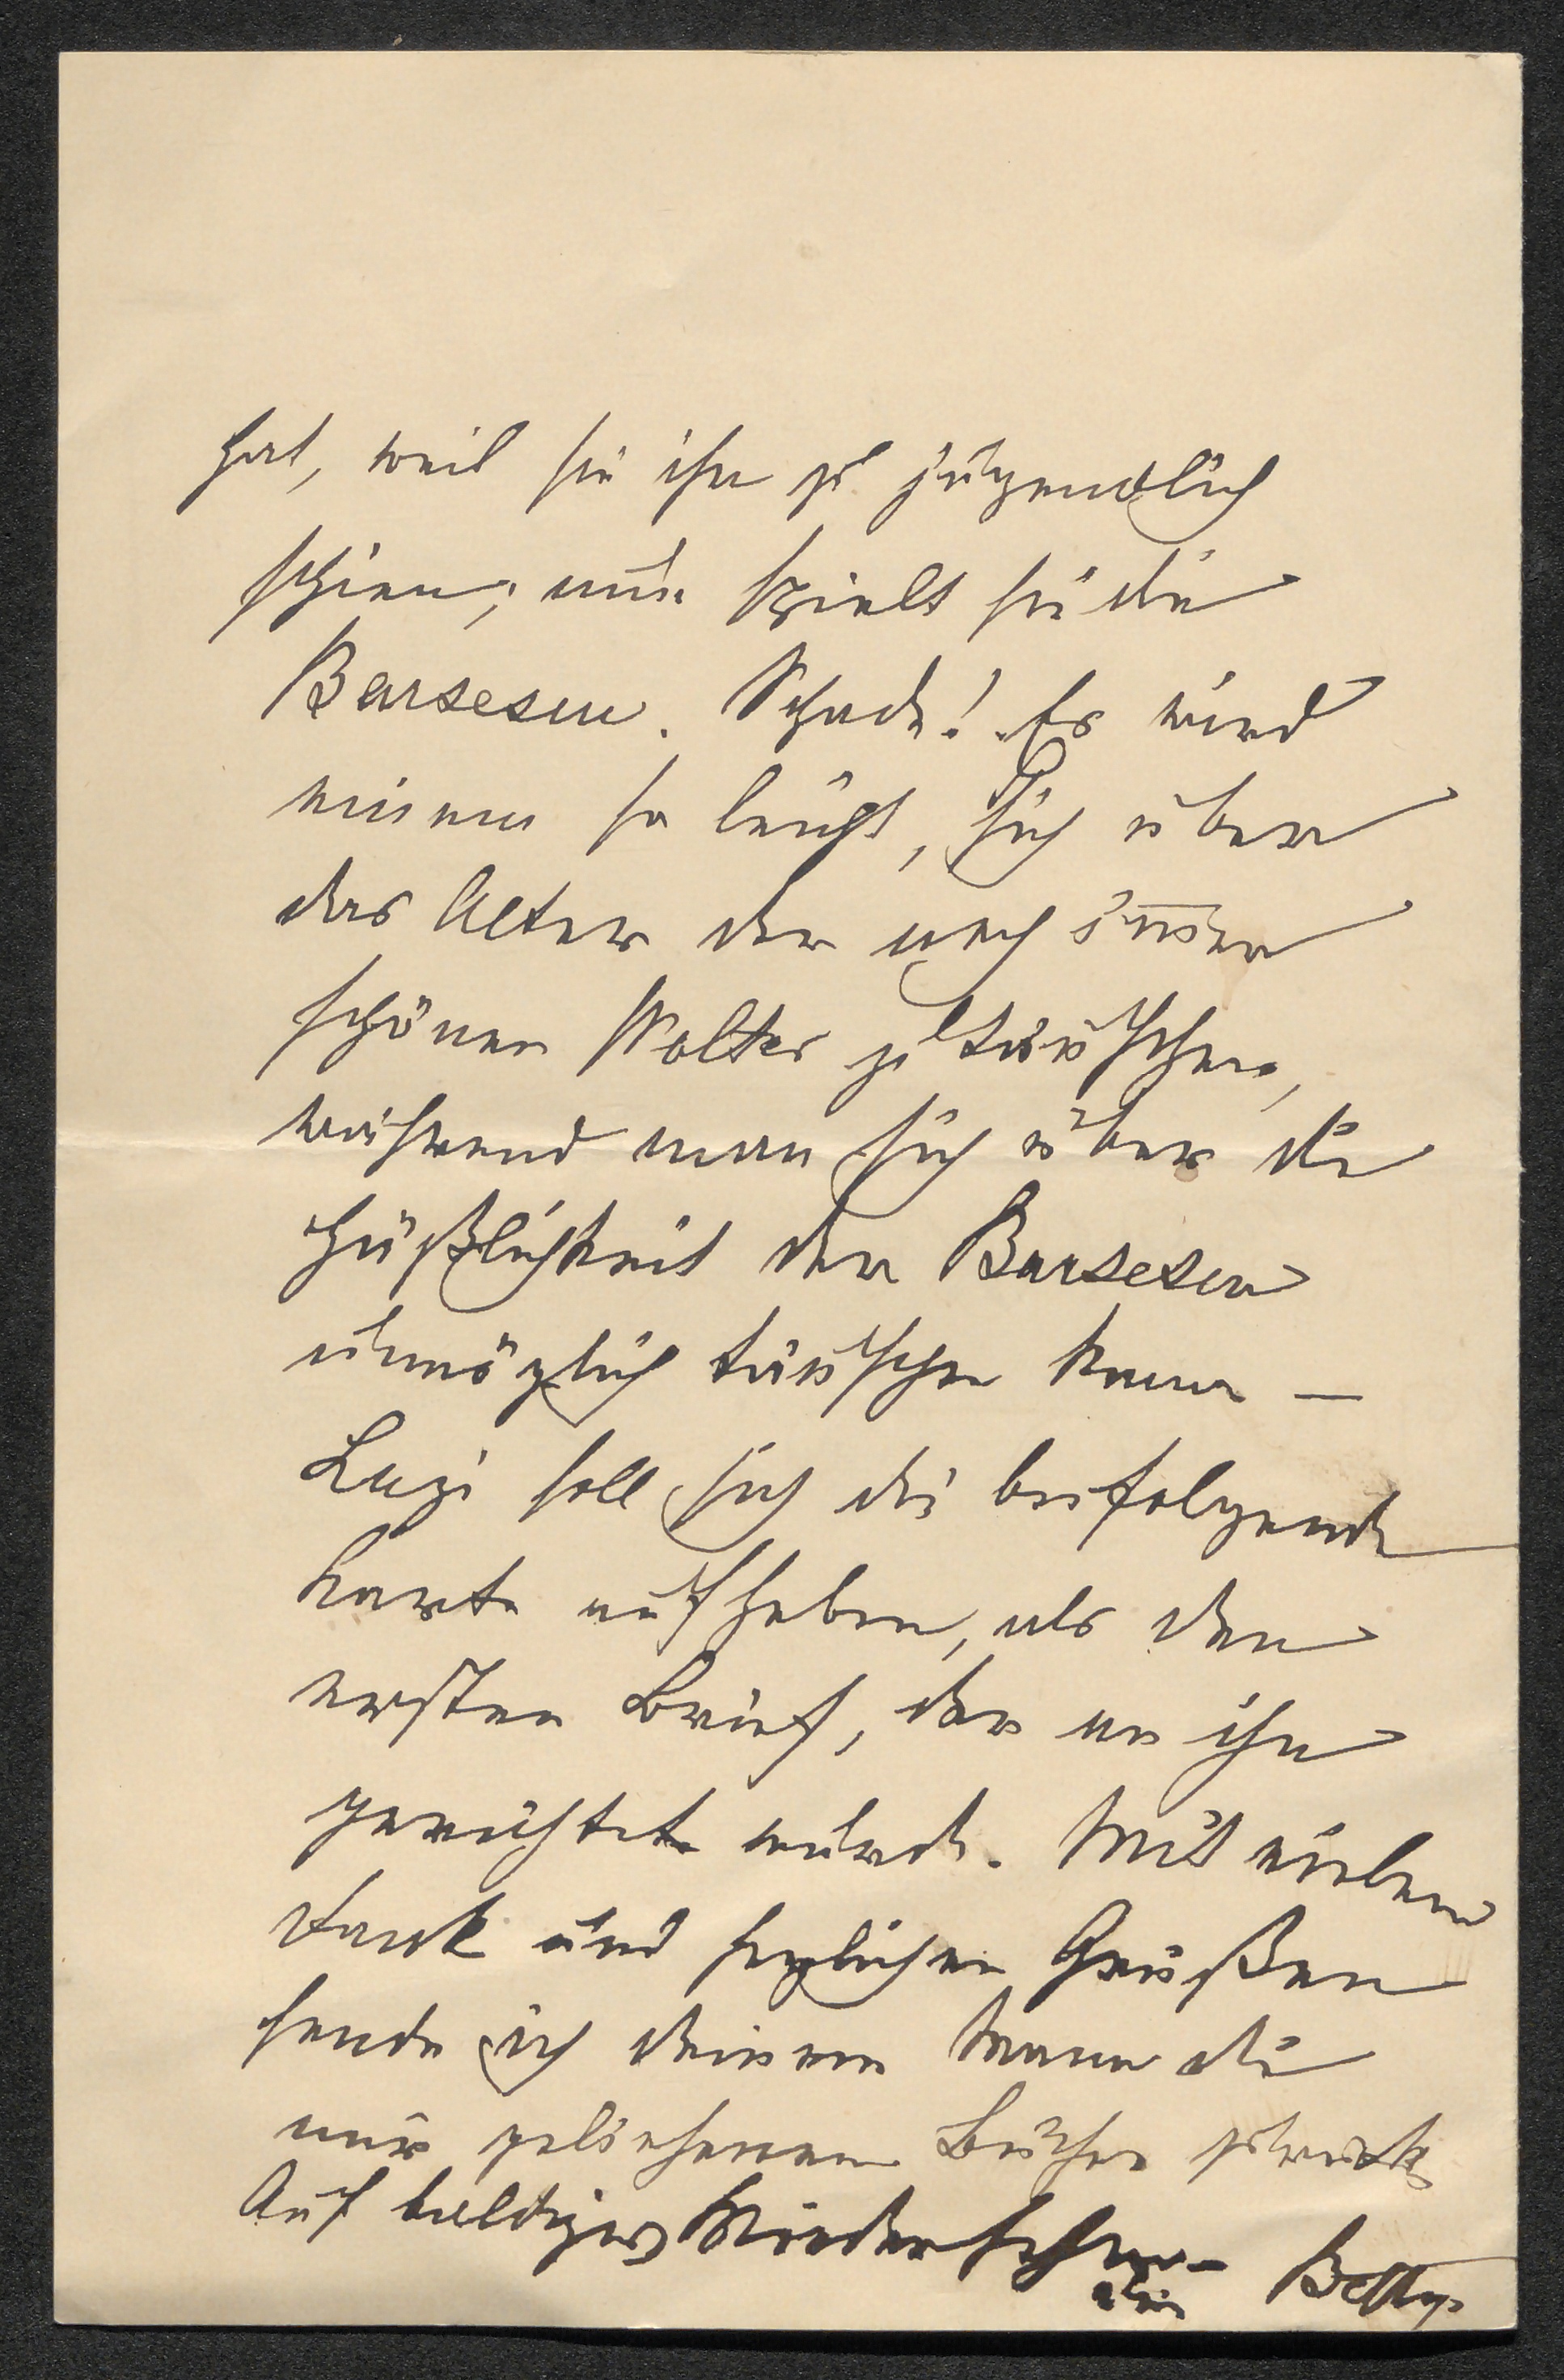 hat, weil sie ihr zu jugendlich
schien; nun spielt sie die
Barsescu. Schade! Es wird
einem so leicht, sich über
das Alter der noch immer
schönen Wolter zu täuschen,
während man sich über die
Häßlichkeit der Barsescu
unmöglich täuschen kann –
Luzi soll sich die beifolgende
Karte aufheben, als den
ersten Brief, der an ihn
gerichtet wurde. Mit vielem
Dank und herzlichen Grüßen
sende ich deinem Mann die
mir geliehenen Bücher zurück
Auf baldiges Wiedersehen –
dein Betty